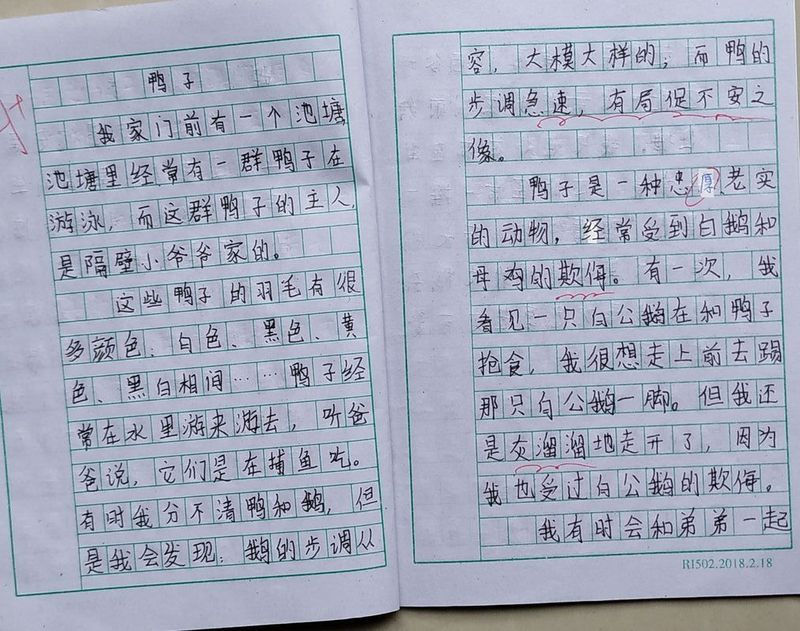 鸭子
我家门前有一个池塘,
池塘里经常有一群鸭子在
游泳，而这群鸭子的主人,
是隔壁小爷爷家的。
这些鸭子的羽毛有很
多颜色、白色、黑色、黄
色、黑白相间……鸭子经
常在水里游来游去，听爸
爸说，它们是在捕鱼吃。
有时我分不清鸭和鹅，但
是我会发现：鹅的步调从
容，大模大样的；而鸭的
步调急速，有局促不安之
像。
鸭子是一种忠厚老实
的动物，经常受到白鹅和
母鸡的欺侮。有一次，我
看见一只白公鹅在和鸭子
抢食，我很想走上前去踢
那只白公鹅一脚。但我还
是灰溜溜地走开了，因为
我也受过白公鹅的欺侮。
我有时会和弟弟一起
R1502.2018.2.18